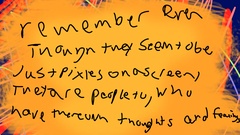 remember Even
Though they seem to be
Just pixles on a screen,
They are people to, who
have there own thoughts and feelings